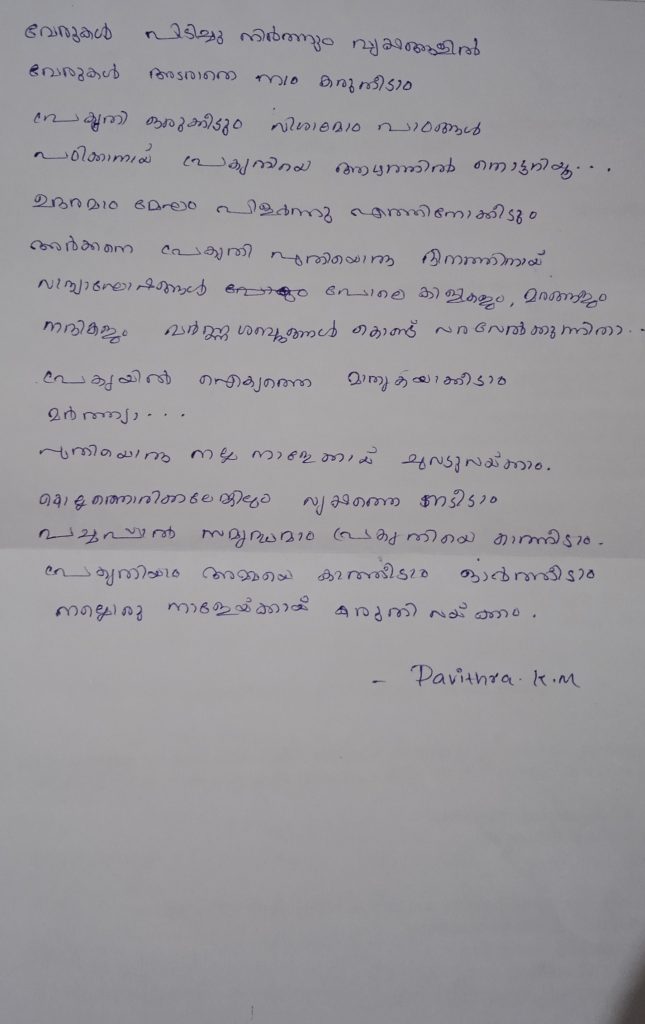 വേരുകൾ പിടിച്ചു നിർത്തും വൃക്ഷങ്ങളിൽ
വേരുകൾ അടരാതെ നാം കരുതീടാം
പ്രകൃതി ഒരുക്കീടും വിശാലമാം പാഠങ്ങൾ
പഠിക്കാനായ് പ്രകൃതിയെ ആഴത്തിൽ തൊട്ടറിയൂ...
ഉദരമാം മേഘം പിളർന്നു എത്തിനോക്കീടും
അർക്കനെ പ്രകൃതി പുതിയൊരു ദിനത്തിനായ്
വാദ്യഘോഷങ്ങൾ പോലെ കിളികളും, മരങ്ങളും
നദികളും വർണ്ണശബ്ദങ്ങൾ കൊണ്ട് വരവേൽക്കുന്നിതാ..
പ്രകൃയിൽ ഐക്യത്തെ മാതൃകയാക്കീടാം
മർത്ത്യാ...
പുതിയൊരു നല്ല നാളേക്കായ് ചുവടുവയ്ക്കാം.
കൊല്ലത്തൊരിക്കലേങ്കിലും വൃക്ഷത്തെ നട്ടീടാം
പച്ചപ്പാൽ സമൃദ്ധമാം പ്രകൃതിയെ കാത്തീടാം.
പ്രകൃതിയാം അമ്മയെ കാത്തീടാം ഓർത്തീടാം
നല്ലൊരു നാളേയ്ക്കായ് കരുതി വയ്ക്കാം.
- Pavithra. K.M